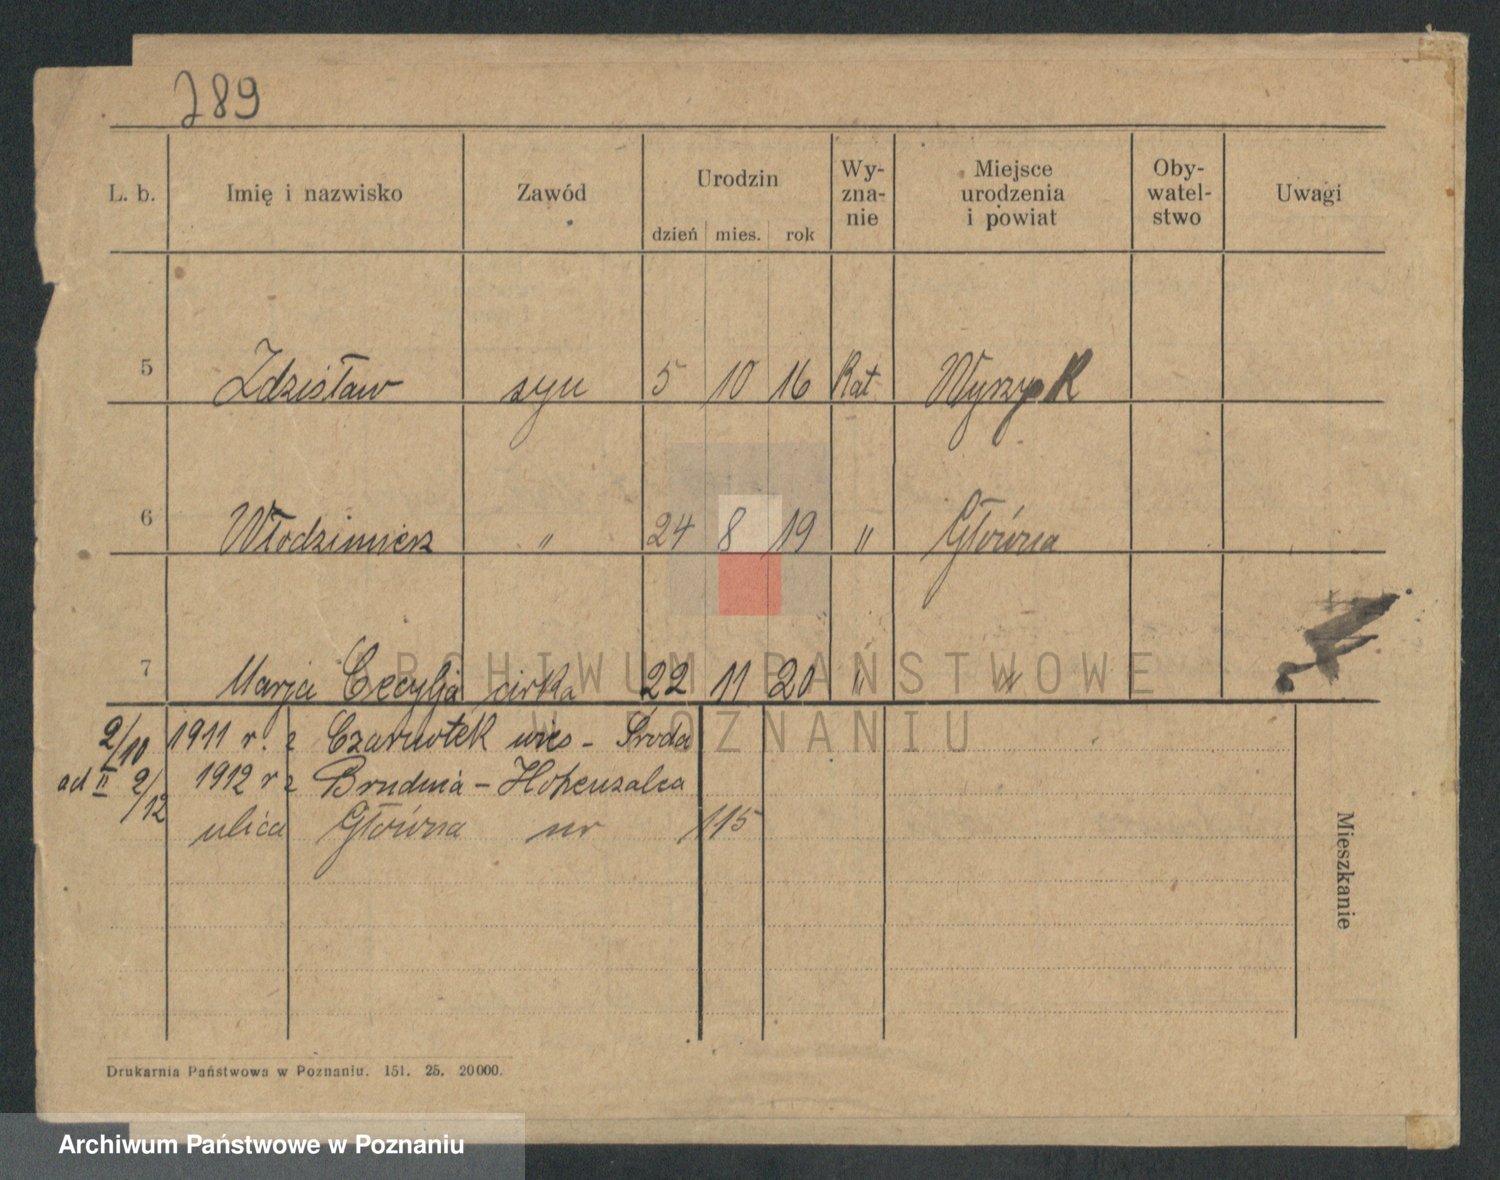 789
L. b. Imię i nazwisko Zawód Urodzin dzień mies. rok Wy-zna-nie Miejsce urodzenia i powiat Oby-watel-stwo Uwagi
5 Zdzisław syn 5 10 16 Kat Wyszyk
6 Włodzimierz " 24 8 19 " Główna
7 Marja Cecylja cirka 22 11 20 " "
ARCHIWUM PAŃSTWOWE
W POZNANIU
2/10 1911 r. z Czarnotek wieś - Środa
ad II 2/12 1912 r z Brudnia - Hohensalca
ulica Główna nr 115
Mieszkanie
Drukarnia Państwowa w Poznaniu. 151. 25. 20000.
Archiwum Państwowe w Poznaniu